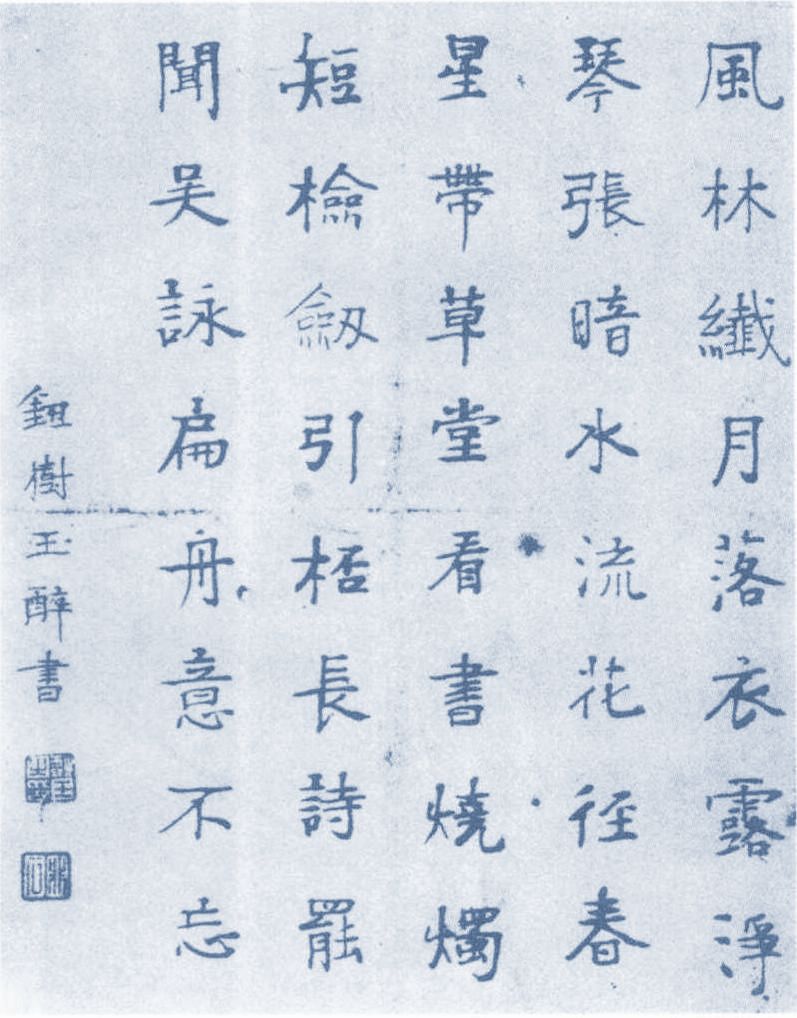 風林纖月落衣露淨
琴張暗水流花径春
星帶草堂看書燒燭
短檢劔引桮長詩罷
聞吴詠扁舟意不忘
鈕樹玉醉書